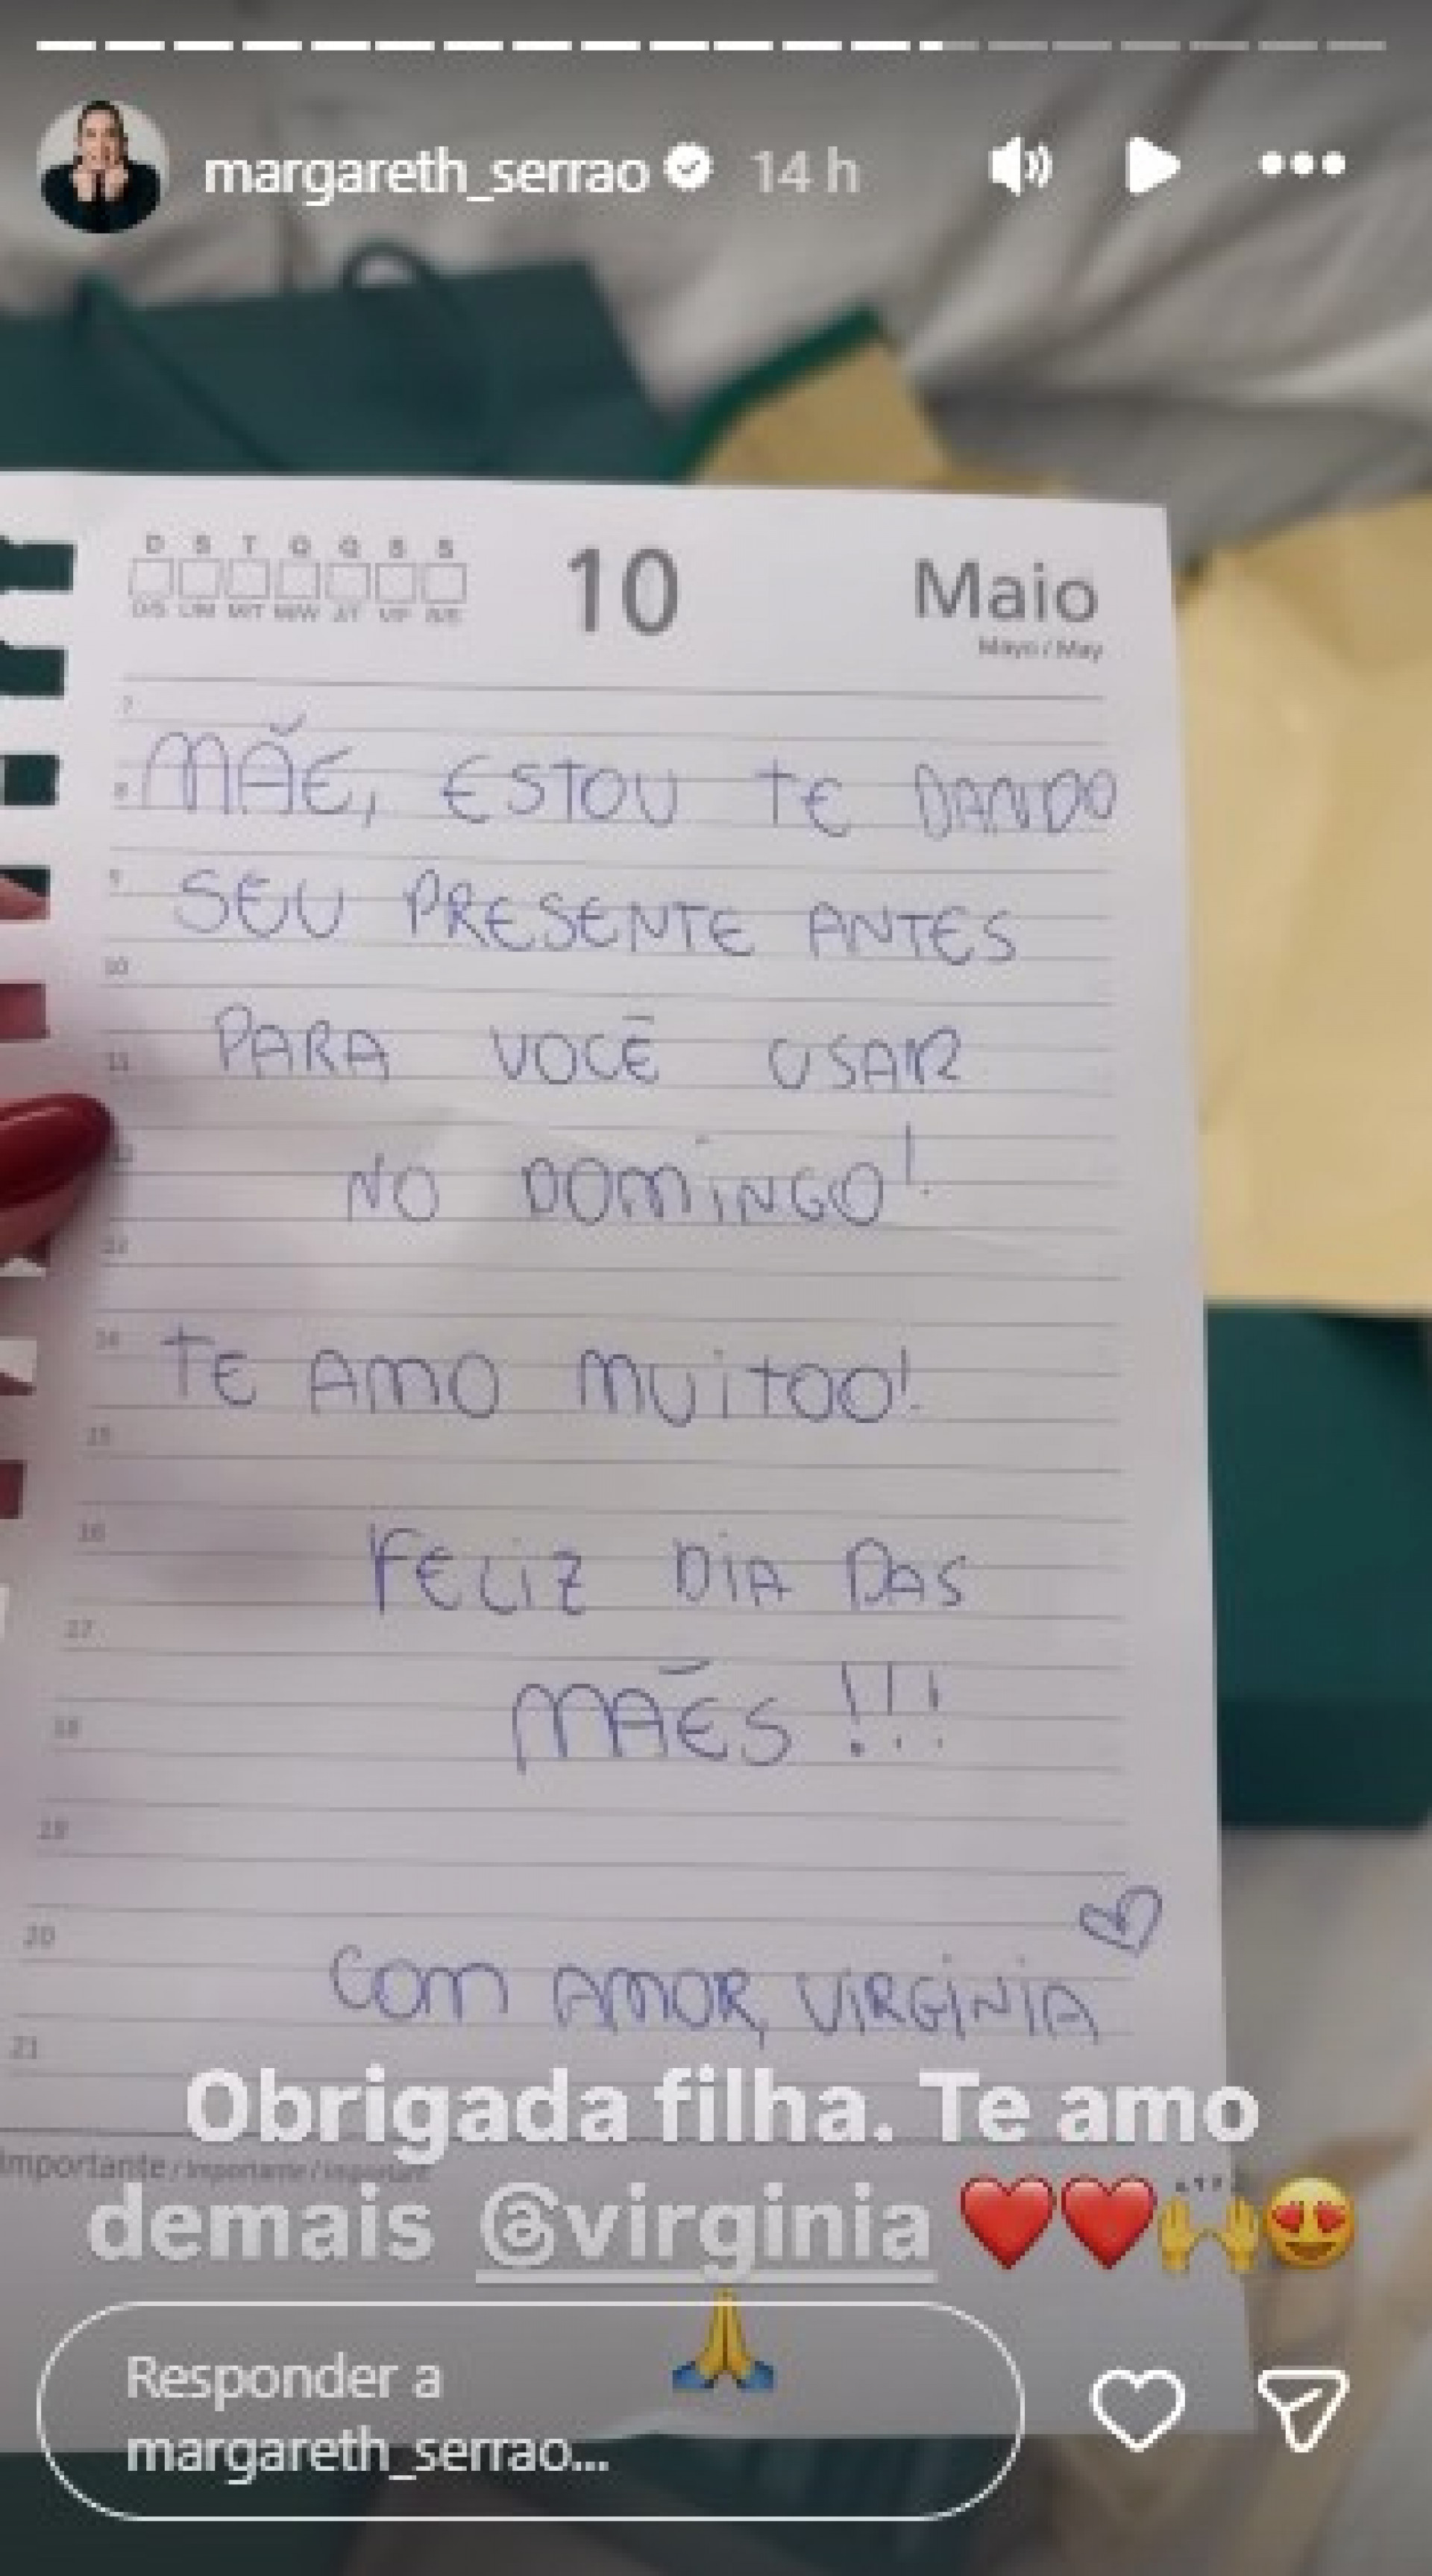 margareth_serrao 14 h
D S T Q Q S S
D/S L/M M/T M/W J/T V/F S/S
10
Maio
Mayo / May
7
MÃE, ESTOU TE DANDO
8
9
SEU PRESENTE ANTES
10
PARA VOCÊ USAR
11
12
NO DOMINGO!
13
14
TE AMO MUITOO!
15
16
FELIZ DIA DAS
17
MÃES !!!
18
19
20
COM AMOR, VIRGINIA
21
Obrigada filha. Te amo
Importante / Importante / Important
demais @virginia ❤️❤️🙌😍
🙏
Responder a
margareth_serrao...